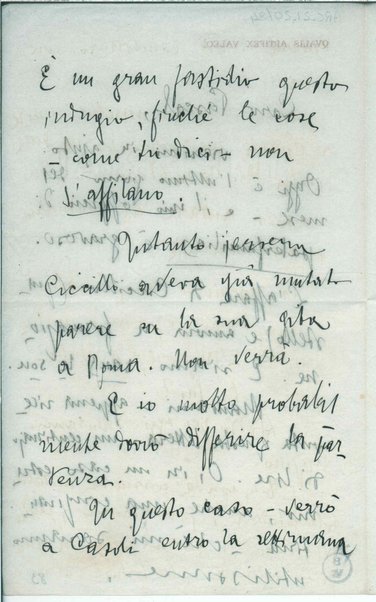 È un gran fastidio questo
indugio, finché le cose
– come tu dici – non
s'affilano.
Intanto jersera
Ciccillo aveva già mutato
parere su la sua gita
a Roma. Non verrà.
E io molto probabil
mente dovrò differire la par-
tenza.
In questo caso – verrò
a Casoli entro la settimana